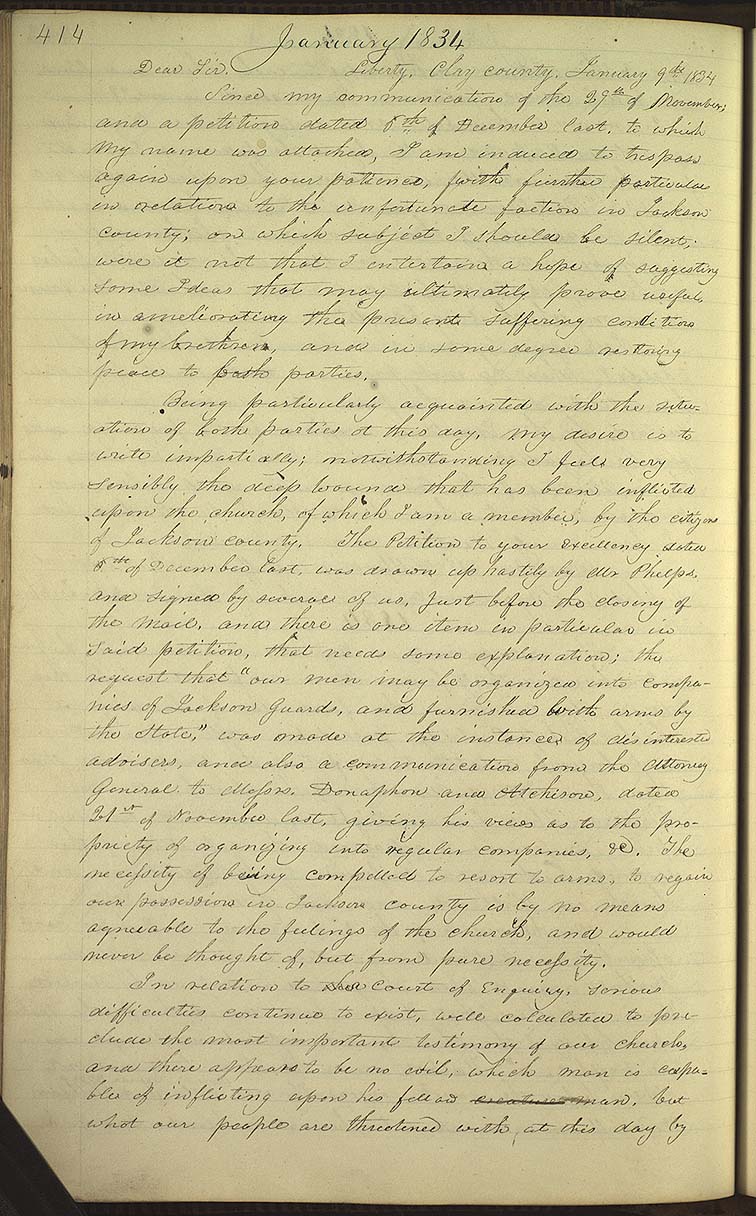 414
January 1834
Dear Sir. Liberty, Clay county, January 9th 1834
Since my communication of the 29th of November,
and a petition dated 6th of December last, to which
my name was attached, I am induced to trespass
again upon your patience, with further particulars
in relation to the unfortunate faction in Jackson
county; on which subject I should be silent,
were it not that I entertain a hope of suggesting
some Ideas that may ultimately prove useful
in ameliorating the present suffering condition
of my brethren, and in some degree restoring
peace to both parties.
Being particularly acquainted with the situ-
ation of both parties at this day, my desire is to
write impartially; notwithstanding I feel very
sensibly the deep wound that has been inflicted
upon the church, of which I am a member, by the citizens
of Jackson county. The Petition to your excellency dated
6th of December last, was drawn up hastily by Mr Phelps,
and signed by several of us, just before the closing of
the mail, and there is one item in particular in
said petition, that needs some explanation; the
request that "our men may be organized into compa-
nies of Jackson Guards, and furnished with arms by
the State," was made at the instance of disinterested
advisers, and also a communication from the Attorney
General to Messrs. Donaphon and Atchison, dated
21st of November last, giving his views as to the pro-
priety of organizing into regular companies, &c. The
necessity of being compelled to resort to arms, to regain
our possessions in Jackson county is by no means
agreeable to the feelings of the church, and would
never be thought of, but from pure necessity.
In relation to Court of Enquiry, serious
difficulties continue to exist, well calculated to pre-
clude the most important testimony of our church,
and there appears to be no evil, which man is capa-
ble of inflicting upon his fellow creature man, but
what our people are threatened with, at this day by